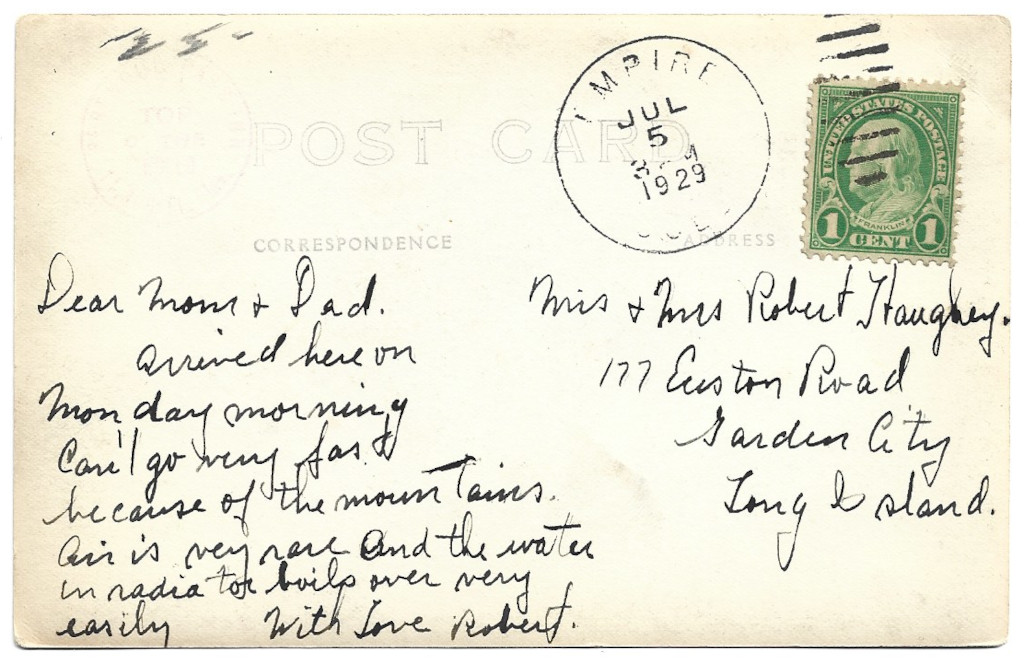 POST CARD
EMPIRE
JUL
5
1929
COLO.
UNITED STATES POSTAGE
FRANKLIN
1 CENT 1
CORRESPONDENCE
ADDRESS
Dear Mom & Dad.
arrived here on
Monday morning
Can't go very fast
because of the mountains.
Air is very rare and the water
in radiator boils over very
easily With Love Robert.
Mrs & Mrs Robert Haughey.
177 Euston Road
Garden City
Long Island.